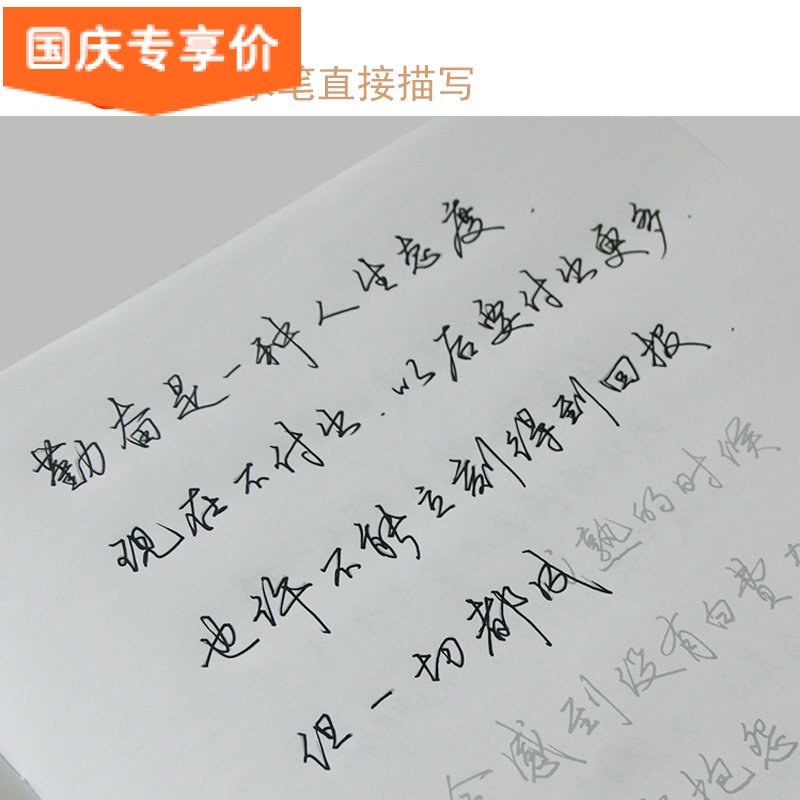 国庆专享价
笔直接描写
勤奋是一种人生态度.
现在不付出.以后要付出更多.
也许不能立刻得到回报.
但一切都成熟的时候
会感到没有白费力
抱怨